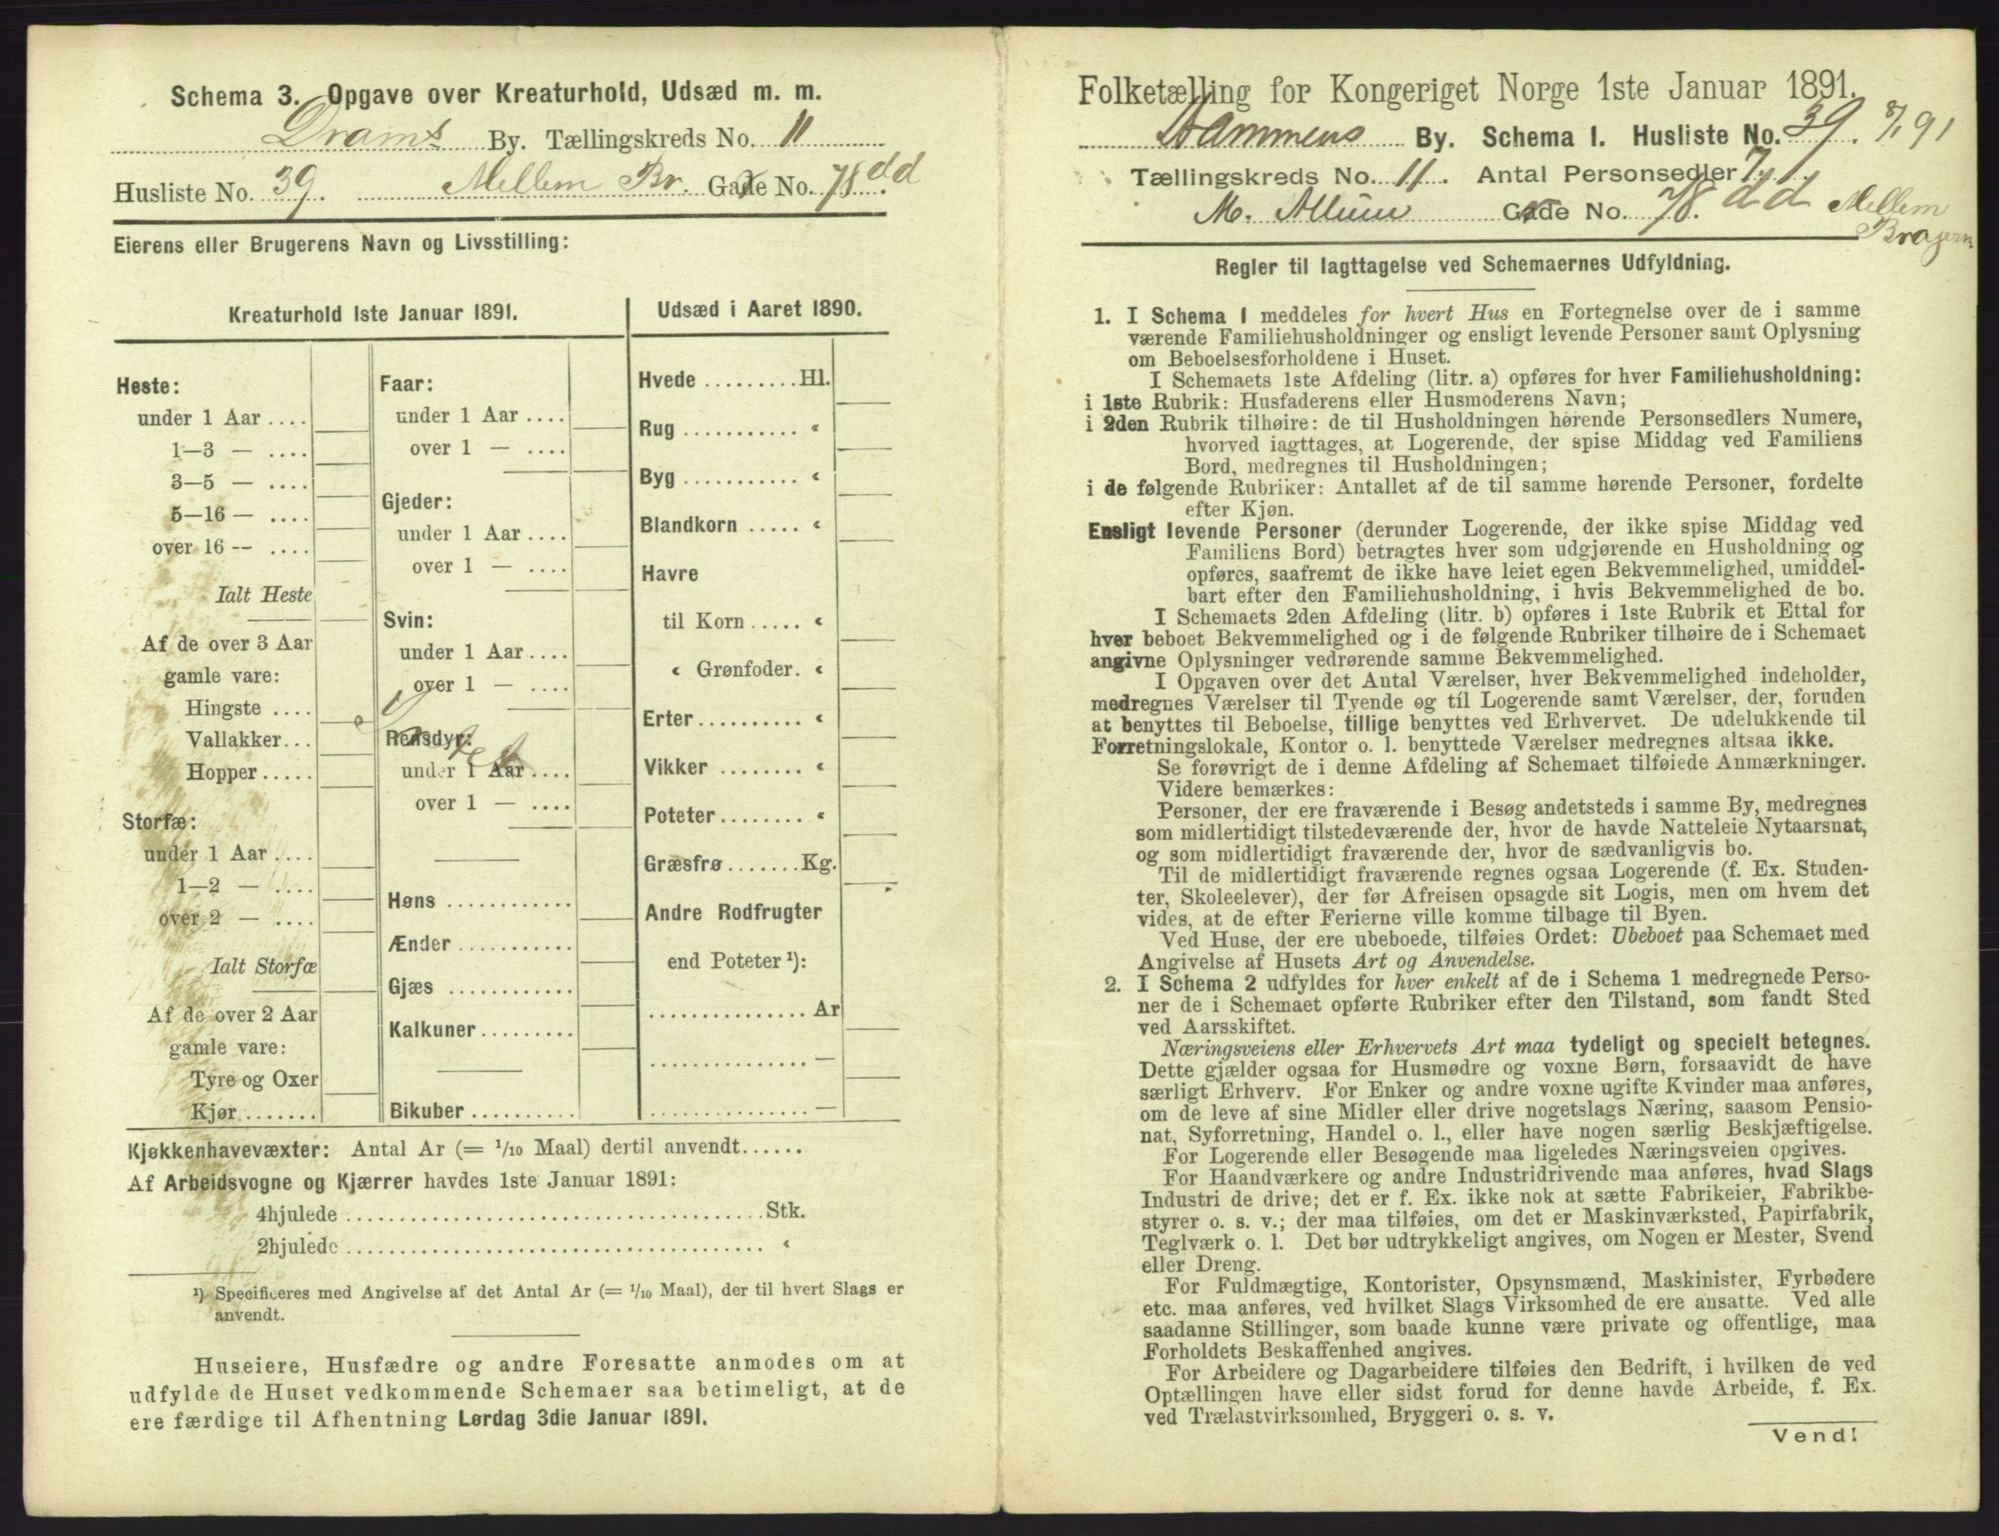 Schema 3. Opgave over Kreaturhold, Udsæd m. m.
Drams By. Tællingskreds No. 11
Husliste No. 39. Mellem Br. Gade No. 78 dd
Eierens eller Brugerens Navn og Livsstilling:
Kreaturhold 1ste Januar 1891.
Heste:
under 1 Aar ....
1—3 — ....
3—5 — ....
5—16 — ....
over 16 — ....
Ialt Heste
Af de over 3 Aar
gamle vare:
Hingste ....
Vallakker...
Hopper .....
Storfæ:
under 1 Aar ....
1—2 — ....
over 2 — ....
Ialt Storfæ
Af de over 2 Aar
gamle vare:
Tyre og Oxer
Kjør.......
Faar:
under 1 Aar ....
over 1 — ....
Gjeder:
under 1 Aar ....
over 1 — ....
Svin:
under 1 Aar ....
over 1 — ....
Rensdyr:
under 1 Aar ....
over 1 — ....
Høns ............
Ænder ...........
Gjæs ............
Kalkuner.........
Bikuber ..........
Udsæd i Aaret 1890.
Hvede .........Hl.
Rug ........... «
Byg ........... «
Blandkorn ..... «
Havre
til Korn ..... «
« Grønfoder. «
Erter.......... «
Vikker ........ «
Poteter........ «
Græsfrø .......Kg.
Andre Rodfrugter
end Poteter ¹):
............... Ar
............... —
............... —
Kjøkkenhavevæxter: Antal Ar (= 1/10 Maal) dertil anvendt......
Af Arbeidsvogne og Kjærrer havdes 1ste Januar 1891:
4hjulede ........................................Stk.
2hjulede ........................................ «
¹) Specificeres med Angivelse af det Antal Ar (= 1/10 Maal), der til hvert Slags er
anvendt.
Huseiere, Husfædre og andre Foresatte anmodes om at
udfylde de Huset vedkommende Schemaer saa betimeligt, at de
ere færdige til Afhentning Lørdag 3die Januar 1891.
Folketælling for Kongeriget Norge 1ste Januar 1891.
Drammens By. Schema I. Husliste No. 39. 8/1 91
Tællingskreds No. 11. Antal Personsedler 7.
M. Allum Gade No. 78. dd Mellem
Bragern
Regler til Iagttagelse ved Schemaernes Udfyldning.
1. I Schema 1 meddeles for hvert Hus en Fortegnelse over de i samme
værende Familiehusholdninger og ensligt levende Personer samt Oplysning
om Beboelsesforholdene i Huset.
I Schemaets 1ste Afdeling (litr. a) opføres for hver Familiehusholdning:
i 1ste Rubrik: Husfaderens eller Husmoderens Navn;
i 2den Rubrik tilhøire: de til Husholdningen hørende Personsedlers Numere,
hvorved iagttages, at Logerende, der spise Middag ved Familiens
Bord, medregnes til Husholdningen;
i de følgende Rubriker: Antallet af de til samme hørende Personer, fordelte
efter Kjøn.
Ensligt levende Personer (derunder Logerende, der ikke spise Middag ved
Familiens Bord) betragtes hver som udgjørende en Husholdning og
opføres, saafremt de ikke have leiet egen Bekvemmelighed, umiddel-
bart efter den Familiehusholdning, i hvis Bekvemmelighed de bo.
I Schemaets 2den Afdeling (litr. b) opføres i 1ste Rubrik et Ettal for
hver beboet Bekvemmelighed og i de følgende Rubriker tilhøire de i Schemaet
angivne Oplysninger vedrørende samme Bekvemmelighed.
I Opgaven over det Antal Værelser, hver Bekvemmelighed indeholder,
medregnes Værelser til Tyende og til Logerende samt Værelser, der, foruden
at benyttes til Beboelse, tillige benyttes ved Erhvervet. De udelukkende til
Forretningslokale, Kontor o. l. benyttede Værelser medregnes altsaa ikke.
Se forøvrigt de i denne Afdeling af Schemaet tilføiede Anmærkninger.
Videre bemærkes:
Personer, der ere fraværende i Besøg andetsteds i samme By, medregnes
som midlertidigt tilstedeværende der, hvor de havde Natteleie Nytaarsnat,
og som midlertidigt fraværende der, hvor de sædvanligvis bo.
Til de midlertidigt fraværende regnes ogsaa Logerende (f. Ex. Studen-
ter, Skoleelever), der før Afreisen opsagde sit Logis, men om hvem det
vides, at de efter Ferierne ville komme tilbage til Byen.
Ved Huse, der ere ubeboede, tilføies Ordet: Ubeboet paa Schemaet med
Angivelse af Husets Art og Anvendelse.
2. I Schema 2 udfyldes for hver enkelt af de i Schema 1 medregnede Perso-
ner de i Schemaet opførte Rubriker efter den Tilstand, som fandt Sted
ved Aarsskiftet.
Næringsveiens eller Erhvervets Art maa tydeligt og specielt betegnes.
Dette gjælder ogsaa for Husmødre og voxne Børn, forsaavidt de have
særligt Erhverv. For Enker og andre voxne ugifte Kvinder maa anføres,
om de leve af sine Midler eller drive nogetslags Næring, saasom Pensio-
nat, Syforretning, Handel o. l., eller have nogen særlig Beskjæftigelse.
For Logerende eller Besøgende maa ligeledes Næringsveien opgives.
For Haandværkere og andre Industridrivende maa anføres, hvad Slags
Industri de drive; det er f. Ex. ikke nok at sætte Fabrikeier, Fabrikbe-
styrer o. s. v.; der maa tilføies, om det er Maskinværksted, Papirfabrik,
Teglværk o. l. Det bør udtrykkeligt angives, om Nogen er Mester, Svend
eller Dreng.
For Fuldmægtige, Kontorister, Opsynsmænd, Maskinister, Fyrbødere
etc. maa anføres, ved hvilket Slags Virksomhed de ere ansatte. Ved alle
saadanne Stillinger, som baade kunne være private og offentlige, maa
Forholdets Beskaffenhed angives.
For Arbeidere og Dagarbeidere tilføies den Bedrift, i hvilken de ved
Optællingen have eller sidst forud for denne havde Arbeide, f. Ex.
ved Trælastvirksomhed, Bryggeri o. s. v.
Vend!